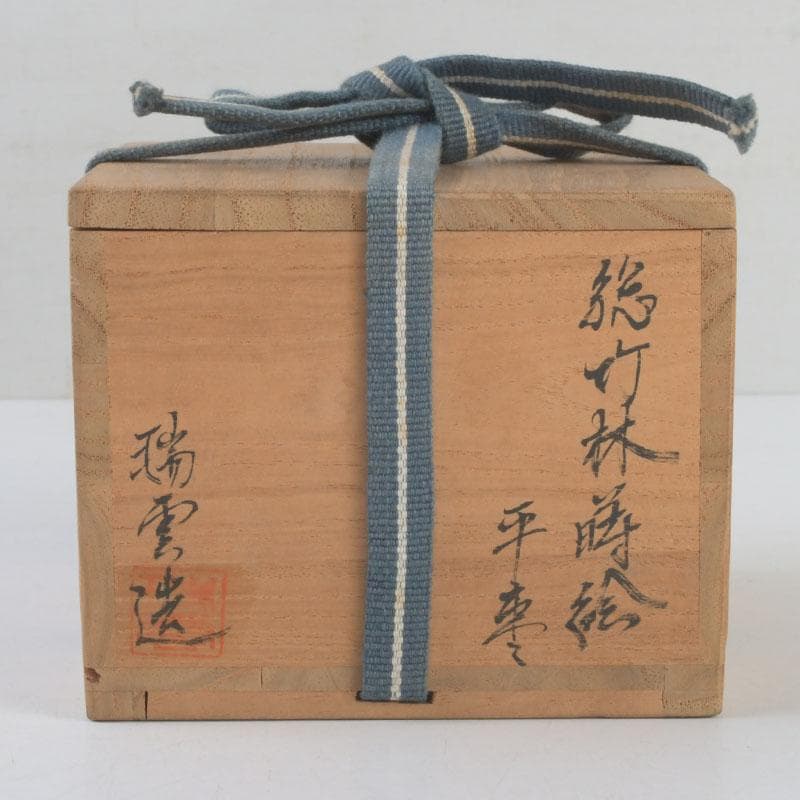 総竹林蒔絵
平棗
瑞雲造